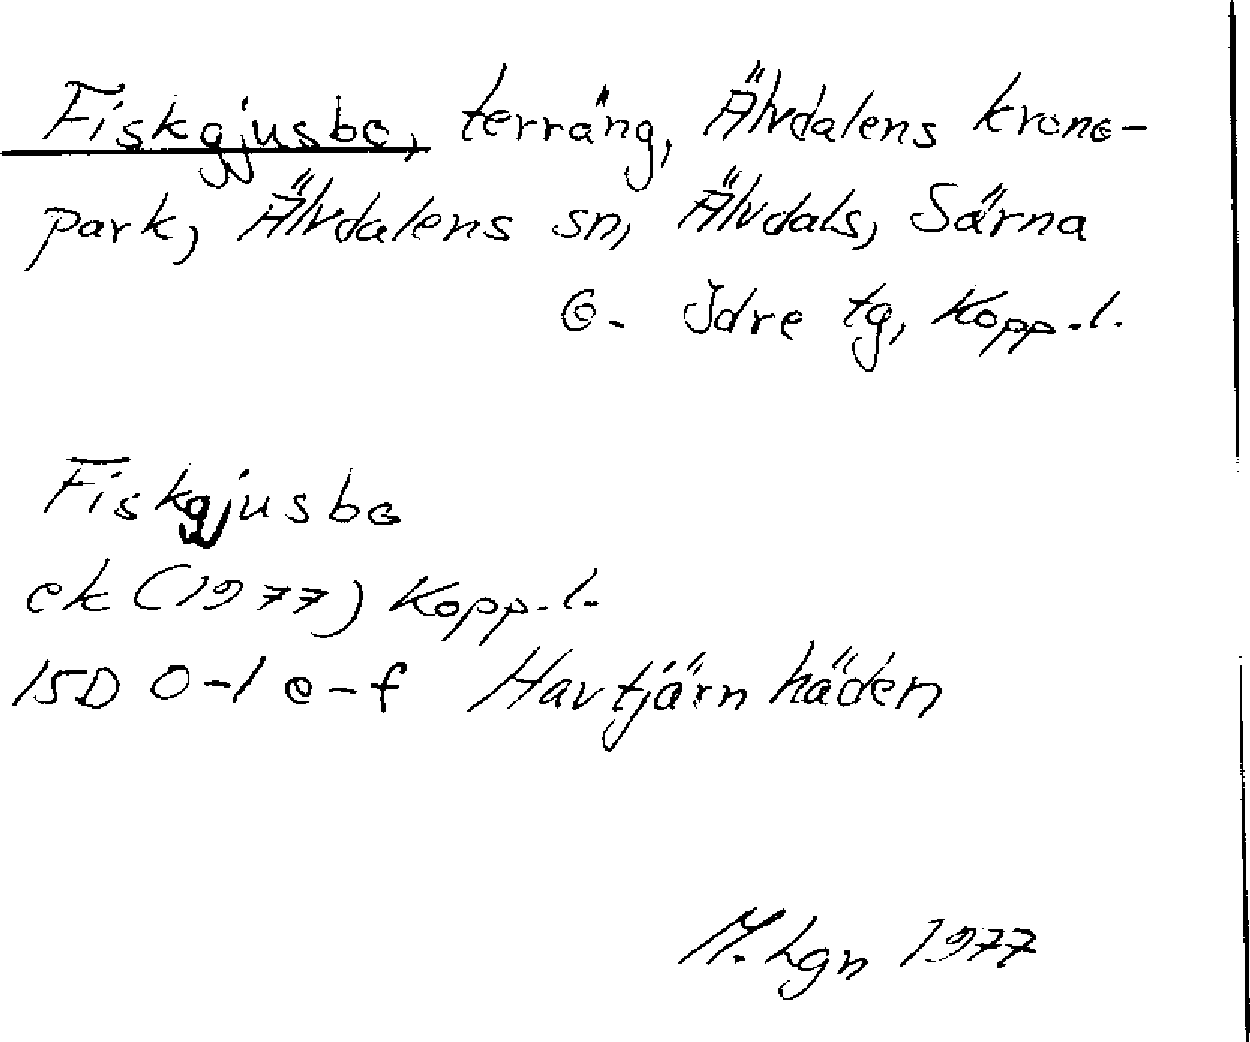 Fiskgjusbo, terräng, Älvdalens krono-
park, Älvdalens sn, Älvdals, Särna
o. Idre tg, Kopp. l.
Fiskgjusbo
ek (1977) Kopp. l.
15D 0-1 e-f Havtjärn häden
M. Lgn 1977